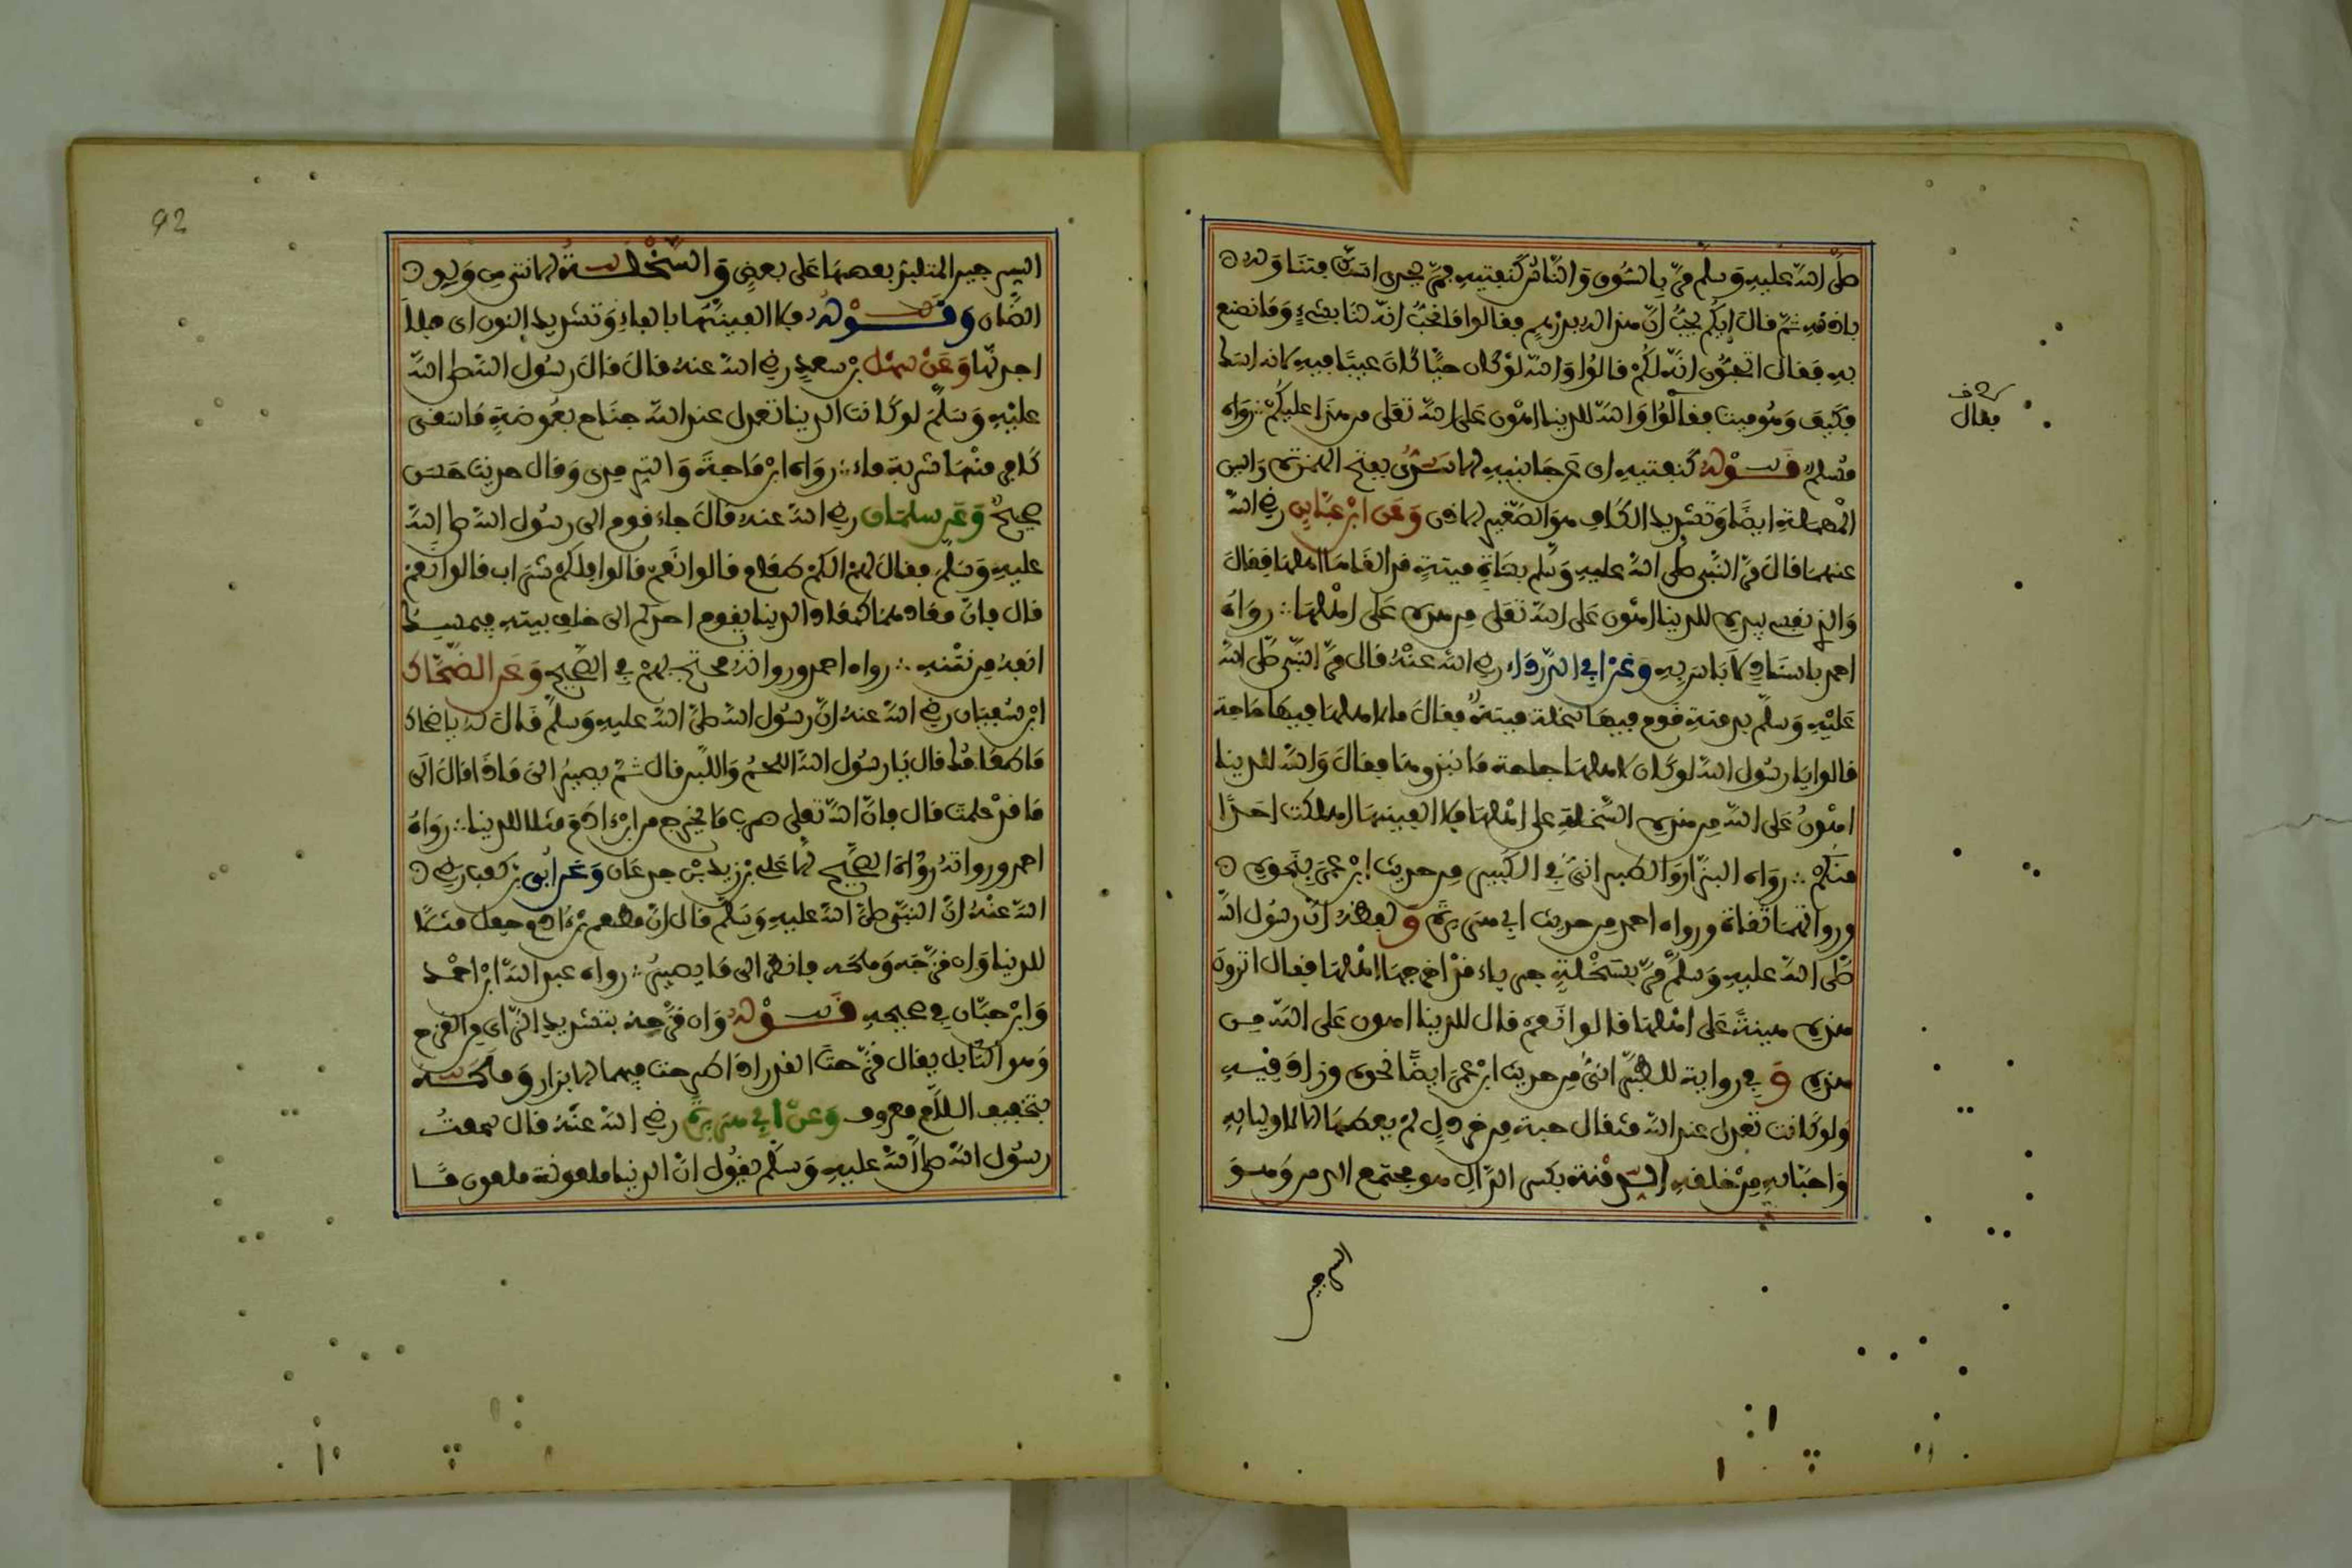 صلى الله عليه وسلم مر بالسوق والناس كنفتيه فمر بجدي اسك فتناوله
باذنه ثم قال ايكم يحب ان هذا له بدرهم فقالوا ما نحب انه لنا بشيء وما نصنع
به فقال اتحبون انه لكم قالوا والله لو كان حيا كان عيبا فيه لانه اسك
فكيف وهو ميت فقالوا والله للدنيا اهون على الله تعلى من هذا عليكم رواه
فقال
مسلم قوله كنفتيه اى عن جانبيه الاسك بفتح الهمزة والسين
المهملة ايضا وتشديد الكاف هو الصغير الاذن وعن ابن عباس رضي الله
عنهما قال مر النبي صلى الله عليه وسلم بشاة ميتة قد القاها اهلها فقال
والذي نفسي بيده للدنيا اهون على الله تعلى من هذه على اهلها رواه
احمد باسناد لا باس به وعن ابي الدرداء رضي الله عنه قال مر النبي صلى الله
عليه وسلم بدمنة قوم فيها سخلة ميتة فقال ما لاهلها فيها حاجة
قالوا يا رسول الله لو كان لاهلها حاجة ما نبذوها فقال والله للدنيا
اهون على الله من هذه السخلة على اهلها فلا الفينها اهلكت احدا
منكم رواه البزار والطبراني في الكبير من حديث ابن عمر بنحوه
ورواتهما ثقاة ورواه احمد من حديث ابي هريرة ولفظه ان رسول الله
صلى الله عليه وسلم مر بسخلة جرباء قد اخرجها اهلها فقال اترون
هذه هينة على اهلها قالوا نعم قال للدنيا اهون على الله من
هذه وفي رواية للطبراني من حديث ابن عمر ايضا نحوه وزاد فيه
ولو كانت تعدل عند الله مثقال حبة من خردل لم يعطها الا لاوليايه
واحبابه من خلقه الدمنة بكسر الدال هو مجتمع الدمن وهو
السرجين
92
السرجين المتلبد بعضها على بعض والسخلة الانثى من ولد
الضان وقوله فلا الفينها بالفاء وتشديد النون اى فلا
اجدنها وعن سهل بن سعد رضي الله عنه قال قال رسول الله صلى الله
عليه وسلم لو كانت الدنيا تعدل عند الله جناح بعوضة ما سقى
كافر منها شربة ماء رواه ابن ماجة والترمذي وقال حديث حسن
صحيح وعن سلمان رضي الله عنه قال جاء قوم الى رسول الله صلى الله
عليه وسلم فقال لهم الكم طعام قالوا نعم قالوا فلكم شراب قالوا نعم
قال فان معادهما كمعاد الدنيا يقوم احدكم الى خلف بيته فيمسك
انفه من نتنه رواه احمد ورواته محتج بهم في الصحيح وعن الضحاك
ابن سفيان رضي الله عنه ان رسول الله صلى الله عليه وسلم قال له يا ضحاك
ما طعامك قال يا رسول الله اللحم واللبن قال ثم يصير الى ماذا قال الى
ما قد علمت قال فان الله تعلى ضرب ما يخرج من ابن ادم مثلا للدنيا رواه
احمد ورواته رواة الصحيح الا علي بن زيد بن جدعان وعن ابي بن كعب رضي
الله عنه ان النبي صلى الله عليه وسلم قال ان مطعم بن ادم جعل مثلا
للدنيا وان قزحه وملحه فانظر الى ما يصير رواه عبد الله ابن احمد
وابن حبان في صحيحه قوله وان قزحه بتشديد الزاي من القزح
وهو التابل يقال قزحت القدر اذا طرحت فيها الابزار وملحه
بتخفيف اللام معروف وعن ابي هريرة رضي الله عنه قال سمعت
رسول الله صلى الله عليه وسلم يقول ان الدنيا ملعونة ملعون ما